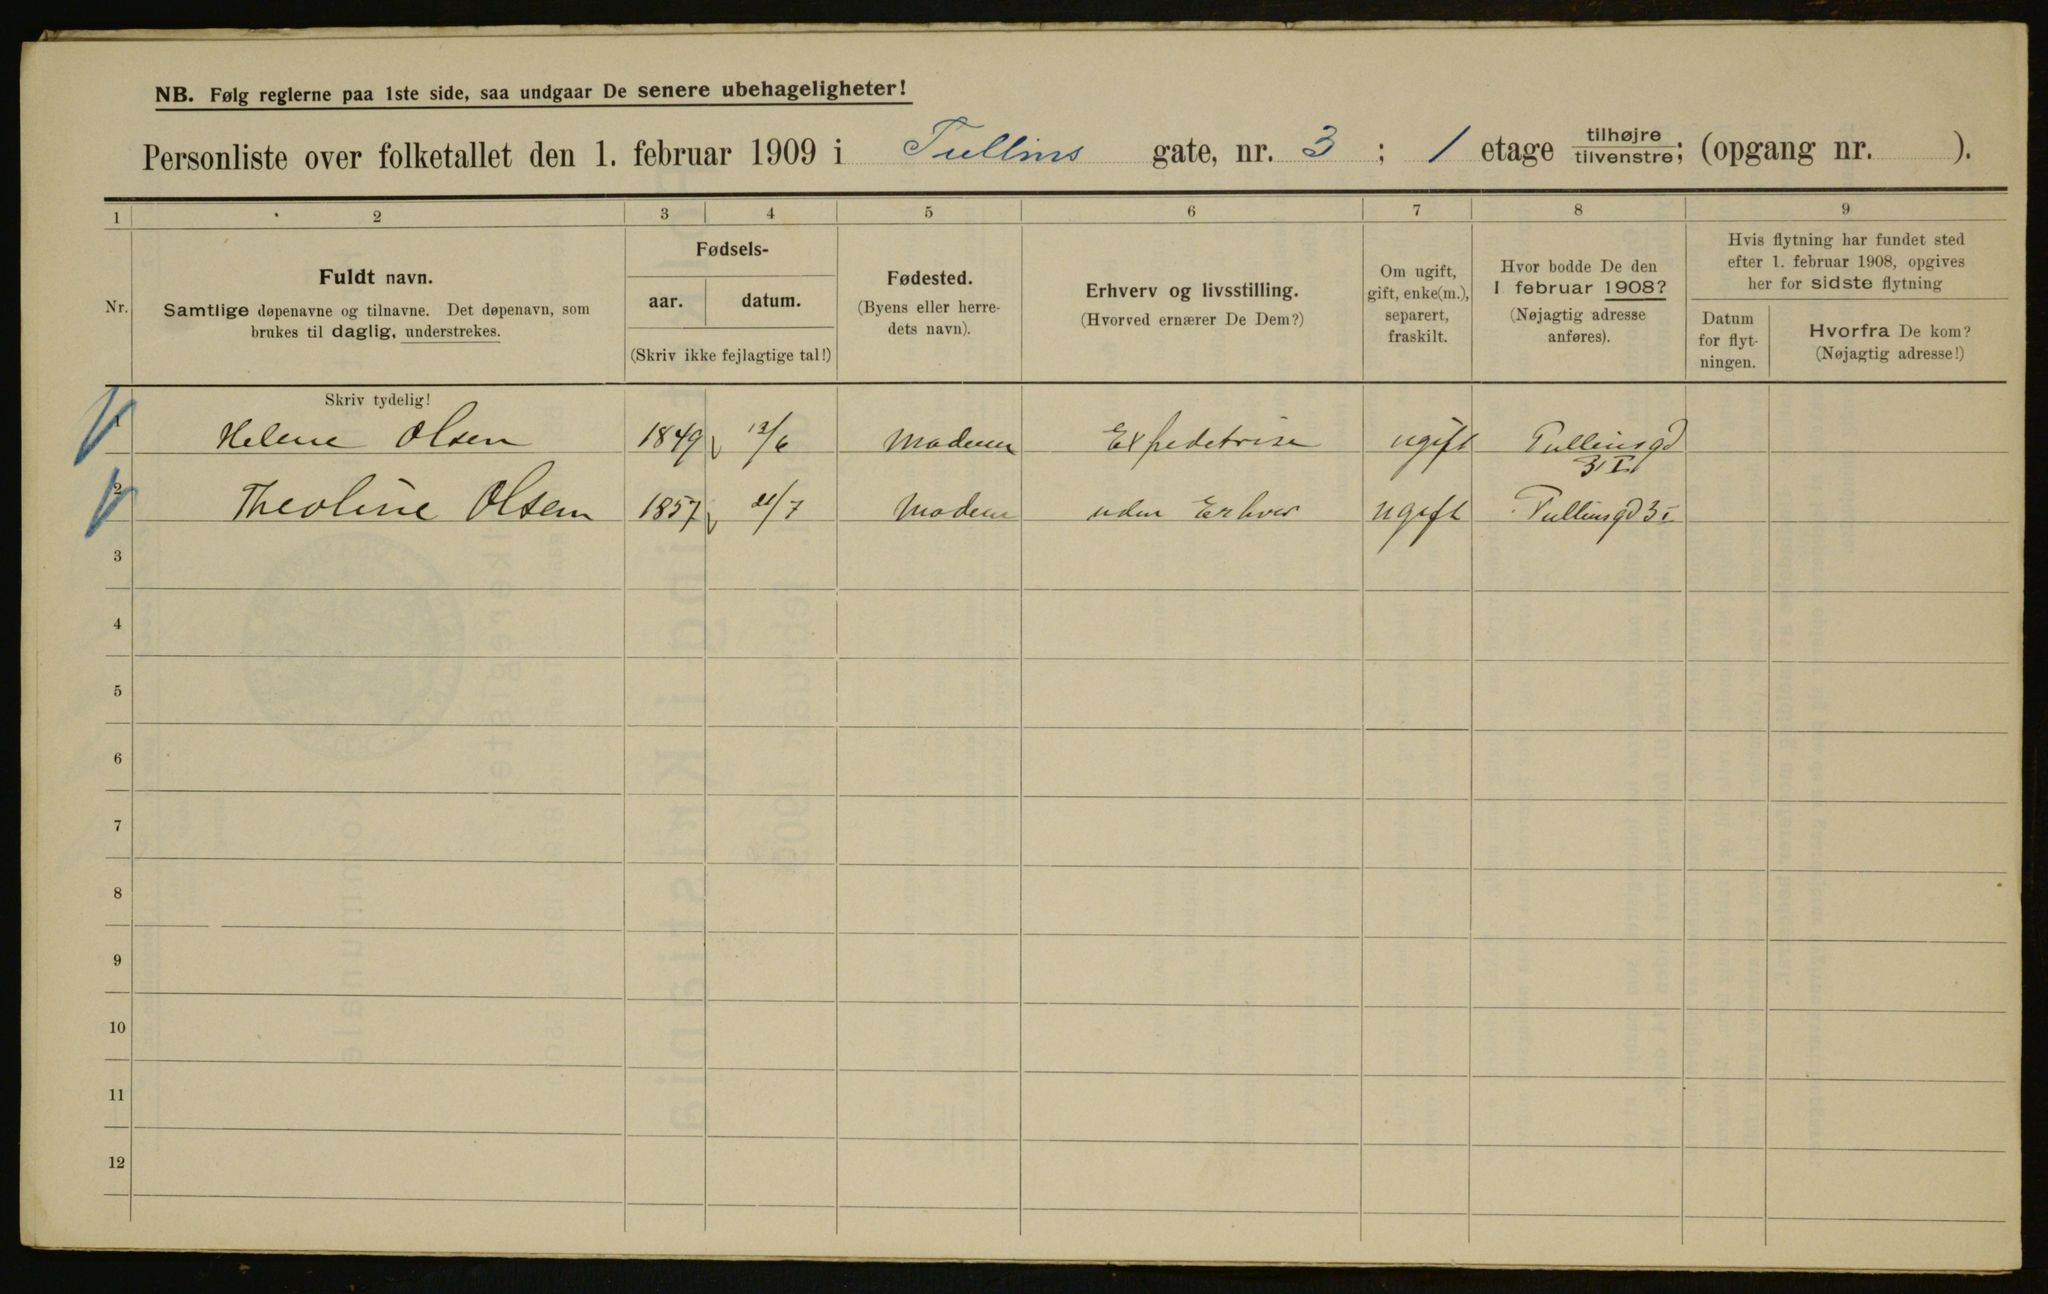 NB. Følg reglerne paa 1ste side, saa undgaar De senere ubehageligheter!
Personliste over folketallet den 1. februar 1909 i Tullins gate, nr. 3 ; 1 etage tilhøjre/tilvenstre; (opgang nr. ).
1 2 3 4 5 6 7 8 9
Nr.
Fuldt navn.
Samtlige døpenavne og tilnavne. Det døpenavn, som
brukes til daglig, understrekes.
Fødsels-
aar. datum.
(Skriv ikke fejlagtige tal!)
Fødested.
(Byens eller herre-
dets navn).
Erhverv og livsstilling.
(Hvorved ernærer De Dem?)
Om ugift,
gift, enke(m.),
separert,
fraskilt.
Hvor bodde De den
1 februar 1908?
(Nøjagtig adresse
anføres).
Hvis flytning har fundet sted
efter 1. februar 1908, opgives
her for sidste flytning
Datum
for flyt-
ningen.
Hvorfra De kom?
(Nøjagtig adresse!)
Skriv tydelig!
1 Helene Olsen 1849 /6 Modum Expedetrise ugift Tullinsgd
3 I
2 Theoline Olsen 1857 21/7 Modum uden Erhver ugift Tullinsgd 3 I
3
4
5
6
7
8
9
10
11
12